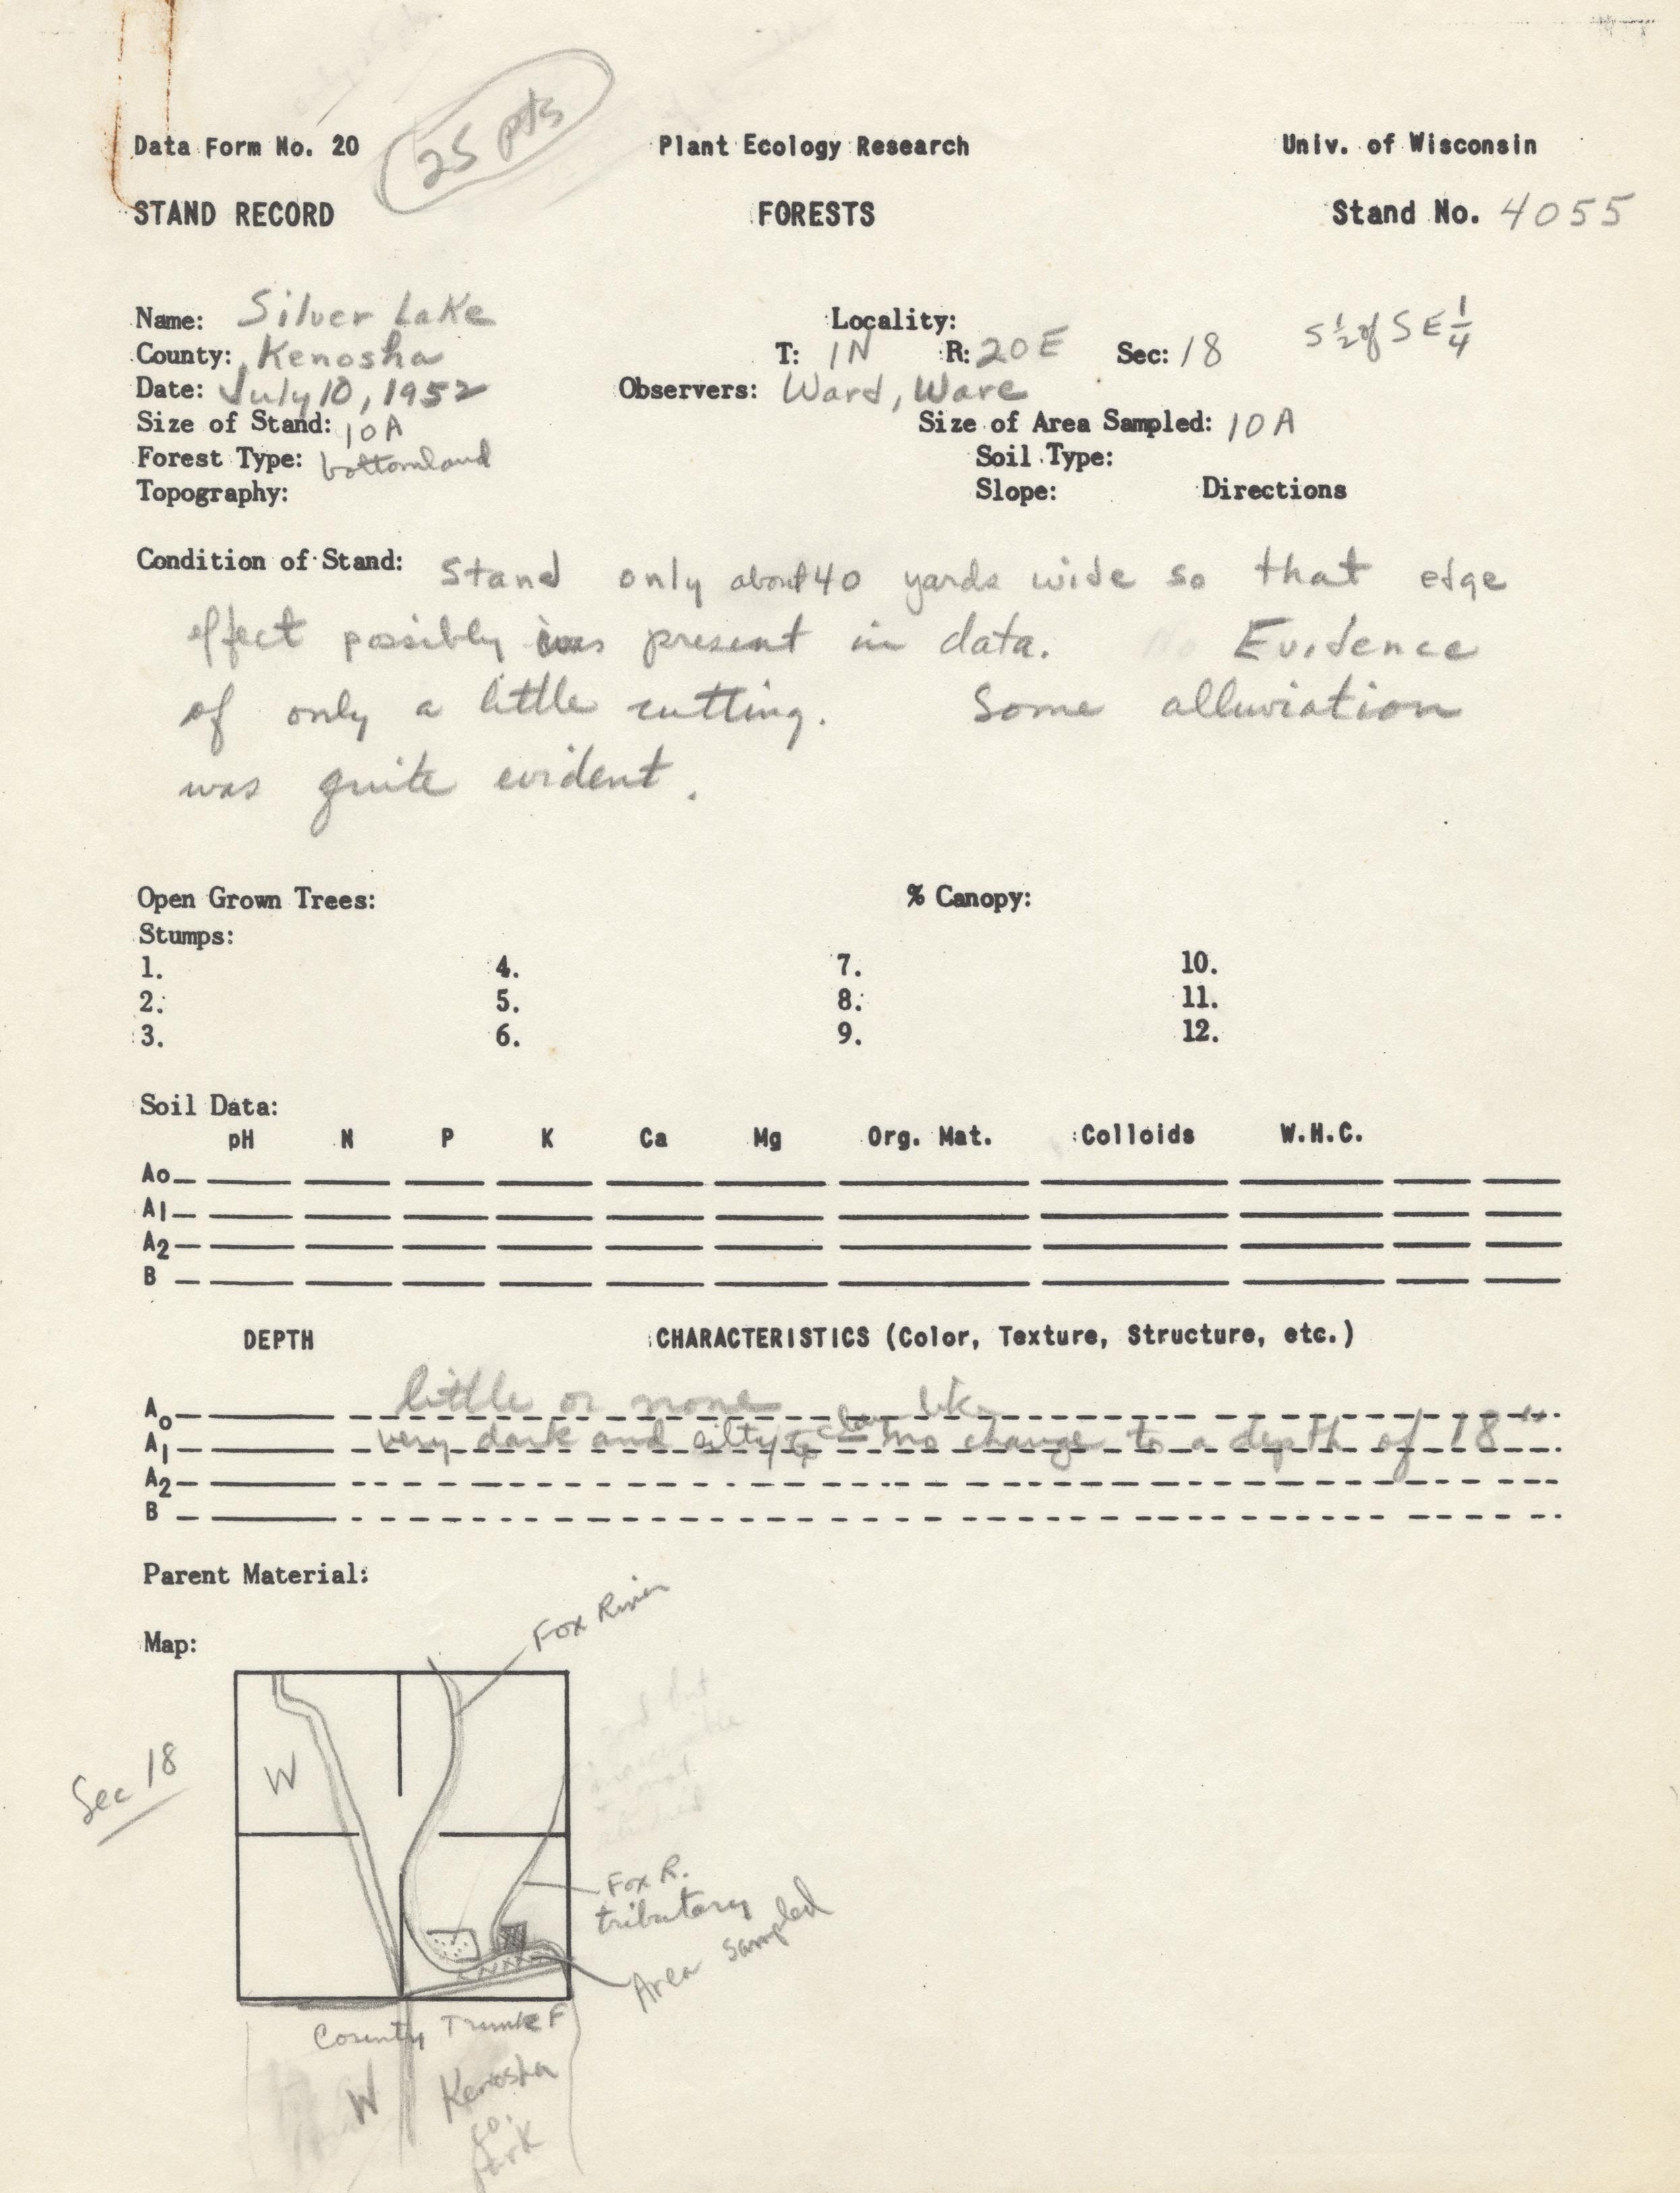 25 pts
Data Form No. 20 Plant Ecology Research Univ. of Wisconsin
STAND RECORD FORESTS Stand No. 4055
Name: Silver Lake Locality: S 1/2 of SE 1/4
County: Kenosha T: 1N R: 20E Sec: 18
Date: July 10, 1952 Observers: Ward, Ware
Size of Stand: 10A Size of Area Sampled: 10A
Forest Type: bottomland Soil Type:
Topography: Slope: Directions
Condition of Stand: Stand only about 40 yards wide so that edge
effect possibly was present in data. Evidence
of only a little cutting. Some alluviation
was quite evident.
Open Grown Trees: % Canopy:
Stumps:
1. 4. 7. 10.
2. 5. 8. 11.
3. 6. 9. 12.
Soil Data:
pH N P K Ca Mg Org. Mat. Colloids W.H.C.
Ao
A1
A2
B
DEPTH CHARACTERISTICS (Color, Texture, Structure, etc.)
Ao little or none
A1 very dark and silty to clay like no change to a depth of 18"
A2
B
Parent Material:
Map:
Fox River
W
Sec 18
Fox R.
tributary
Area sampled
County Trunk F
W Kenosha
Co.
Park